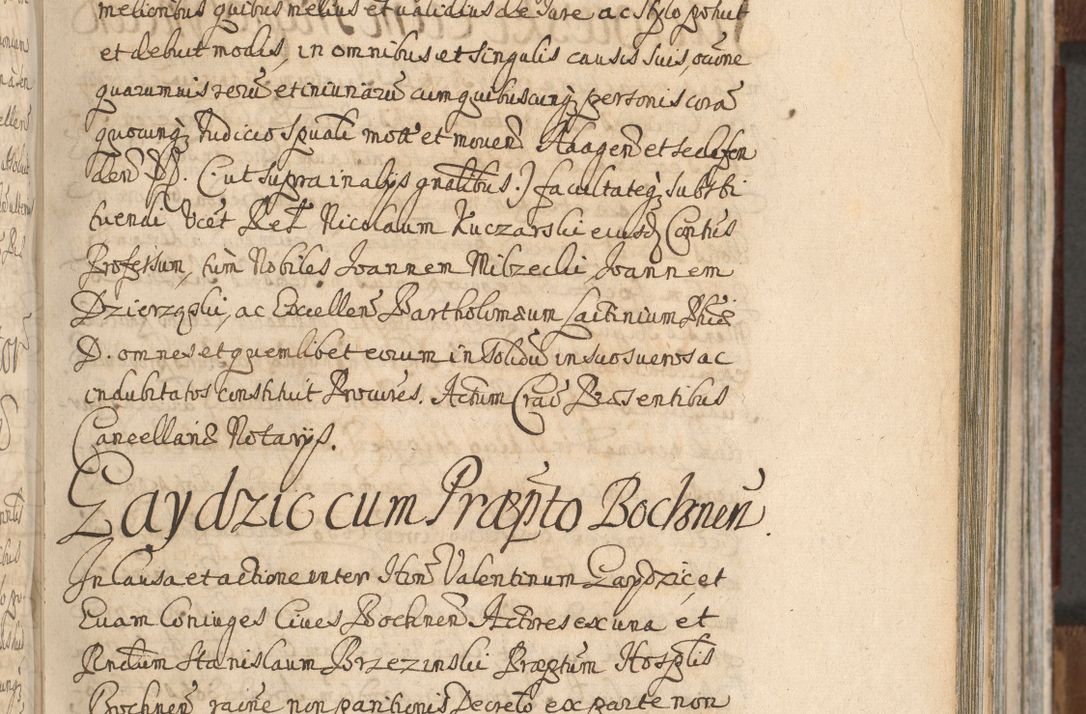 melioribus quibus melius et validius de Iure ac stylo potuit
et debuit modis, in omnibus et singulis causis suis, oc̃one
quarumuis rerũ et iniuriarũ cum quibuscunq; personis corã
quocunq; Iudicio sp̃uali mot̃ et mouen̄ Ad agen̄ et se defen
den̄ (: ut supra in alijs gñalibus.) facultateq; substi
tuendi Vcet Nicolaum Kuczarski eiusd̃ Conttus
Professum, tùm Nobiles Joannem Milzecki, Joannem
ac Excellen̄ Bartholomæum Lactinium Phiæ
D. omnes et quemlibet eorum in solidũ in suos ueros ac
indubitatos constituit Procur̃es. Actum Crac̃ Præsentibus
Cancellariæ Notarijs.
Gaydzic cum Præp̃to Bochnen̄.
In Causa et actione inter Hon̄ Valentinum Gaydzic, et
Euam Coniuges Ciues Bochnen̄ Actores ex una et
Rñdum Stanislaum Brzezinski Præp̃tum Hosp̃lis
Bochnen̄ rãone non paritionis Decreto ex parte non